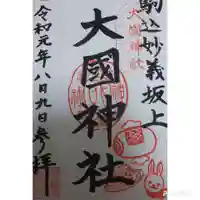 駒込妙義坂上
大國神社
大國神社
令和元年八月九日参拝